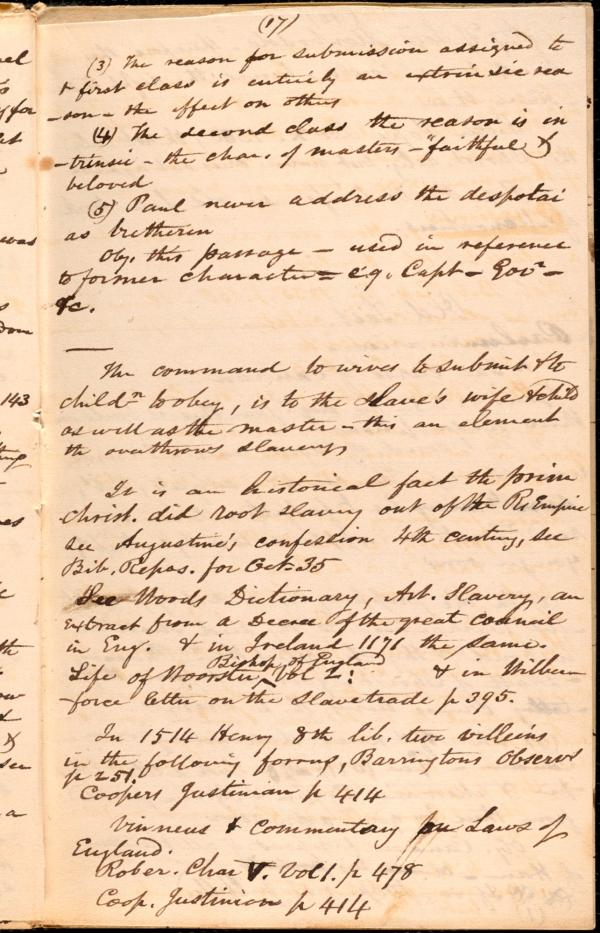 (17)
(3) The reason for submission assigned to
+ first class is entirely an extrinsic rea
-son - the effect on others
(4) The second class the reason is in
-trinsic - the char. of masters - "faithful &
beloved
(5) Paul never address the despotai
as bretheren
Obj. this passage - used in reference
to former character = e.g. Capt - Govr -
&c.
The command to wives to submit & to
childn to obey, is to the slave's wife & child
as well as the master - this an element
tht overthrows slavery
It is an historical fact tht prim
christ. did root slavery out of the Rn Empire
see Augustine's confession 4th century, see
Bib. Repos. for Oct - 35
See Woods Dictionary, Art. Slavery, an
extract from a Decree of the great council
in Eng. & in Ireland 1171 the same.
Bishop of England
Life of Vol 2: & in Wilber
-force letter on the slave trade p 395.
In 1514 Henry 8th lib. two villeins
in the following forms, Barringtons Observs
p 251.
Coopers Justinian p 414
Vinneus & commentary Laws of
England.
Rober. Char V. Vol 1. p 478
Coop. Justinian p 414